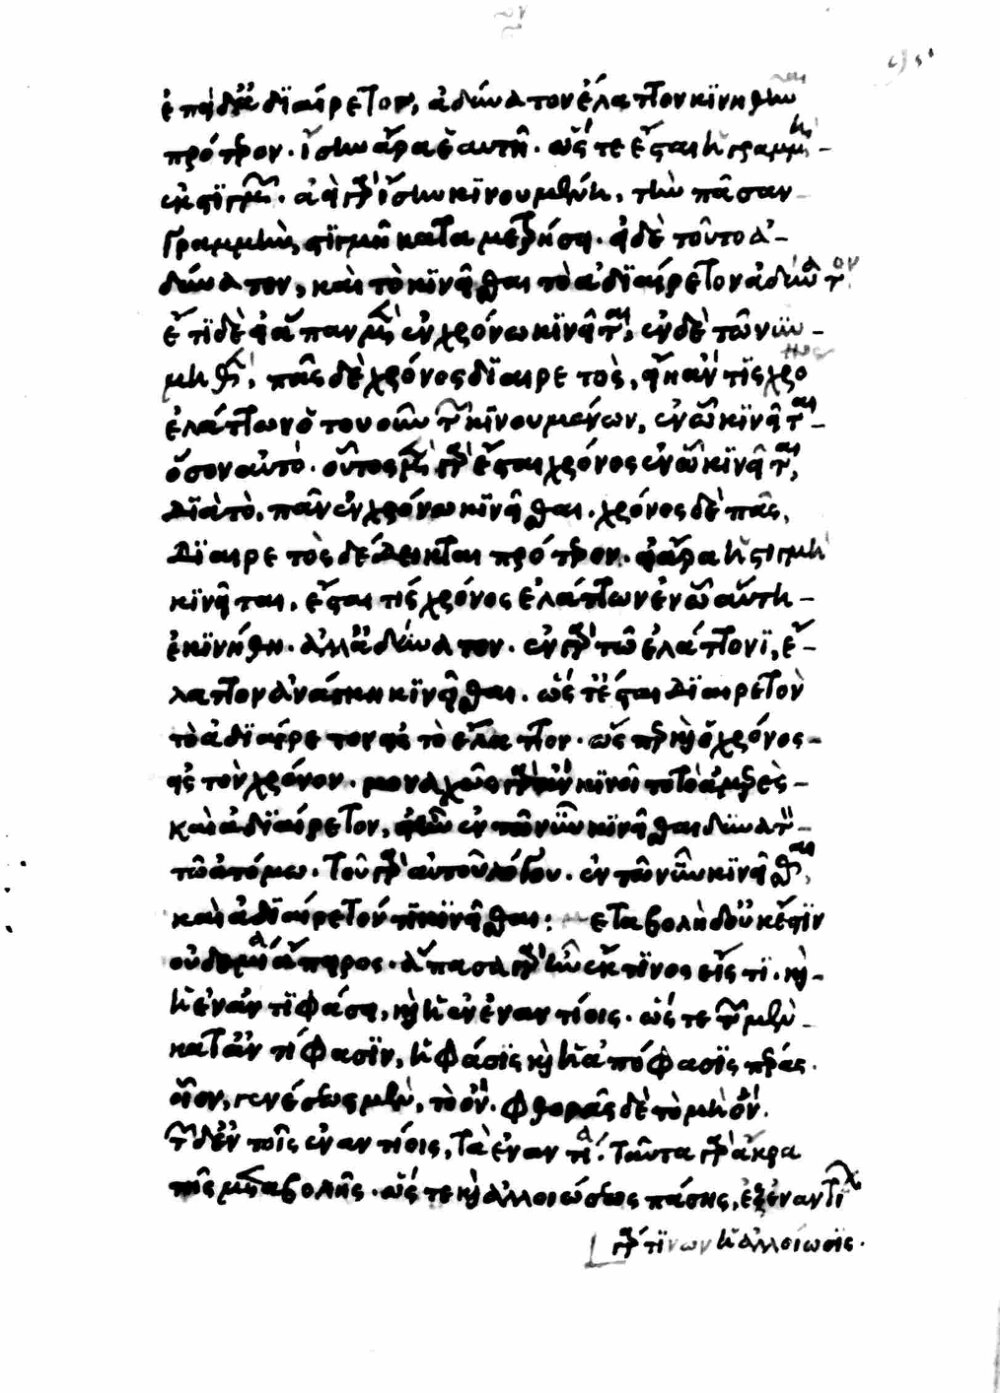 ἐπεὶ δὲ ἀδιαίρετον, ἀδύνατον ἔλαττον κινηθῆναι
πρότερον· ἴσην ἄρα ἑαυτῇ· ὥστε ἔσται ἡ γραμμὴ
ἐκ στιγμῶν· ἀεὶ γὰρ ἴσην κινουμένη, τὴν πᾶσαν
γραμμὴν στιγμὴ καταμετρήσει· εἰ δὲ τοῦτο ἀ-
δύνατον, καὶ τὸ κινεῖσθαι τὸ ἀδιαίρετον ἀδύνατον.
ἔτι δὲ εἰ ἅπαν μὲν ἐν χρόνῳ κινεῖται, ἐν δὲ τῷ νῦν
μηθέν, πᾶς δὲ χρόνος διαιρετὸς, εἴη ἄν τις χρόνος
ἐλάττων ὁτουοῦν τῶν κινουμένων, ἐν ᾧ κινεῖται
ὅσον αὐτό· οὗτος μὲν γὰρ ἔσται χρόνος ἐν ᾧ κινεῖται,
διὰ τὸ πᾶν ἐν χρόνῳ κινεῖσθαι· χρόνος δὲ πᾶς,
διαιρετὸς δέδεικται πρότερον· εἰ ἄρα ἡ στιγμὴ
κινεῖται, ἔσται τίς χρόνος ἐλάττων ἐν ᾧ αὕτη
ἐκινήθη· ἀλλ' ἀδύνατον· ἐν γὰρ τῷ ἐλάττονι, ἔ-
λαττον ἀνάγκη κινεῖσθαι· ὥστ' ἔσται διαιρετὸν
τὸ ἀδιαίρετον εἰς τὸ ἔλαττον· ὥσπερ καὶ ὁ χρόνος
εἰς τὸν χρόνον· μοναχῶς γὰρ ἂν κινοῖτο τὸ ἀμερὲς
καὶ ἀδιαίρετον, εἰ ἦν ἐν τῷ νῦν κινεῖσθαι δυνατὸν
τῷ ἀτόμῳ· τοῦ γὰρ αὐτοῦ λόγου· ἐν τῷ νῦν κινεῖσθαι,
καὶ ἀδιαίρετόν τι κινεῖσθαι: εταβολὴ δ' οὐκ ἔστιν
οὐδεμία ἄπειρος· ἅπασα γὰρ ἦν ἔκ τινος εἴς τι· καὶ
ἡ ἐν ἀντιφάσει, καὶ ἡ ἐν ἐναντίοις· ὥστε τῶν μὲν
κατ' ἀντίφασιν, ἡ φάσις καὶ ἡ ἀπόφασις πέρας·
οἷον, γενέσεως μὲν, τὸ ὄν· φθορᾶς δὲ τὸ μὴ ὄν·
τῶν δ' ἐν τοῖς ἐναντίοις, τὰ ἐναντία· ταῦτα γὰρ ἄκρα
τῆς μεταβολῆς· ὥστε καὶ ἀλλοιώσεως πάσης, ἐξ ἐναντίων
γάρ τινων ἡ ἀλλοίωσις.